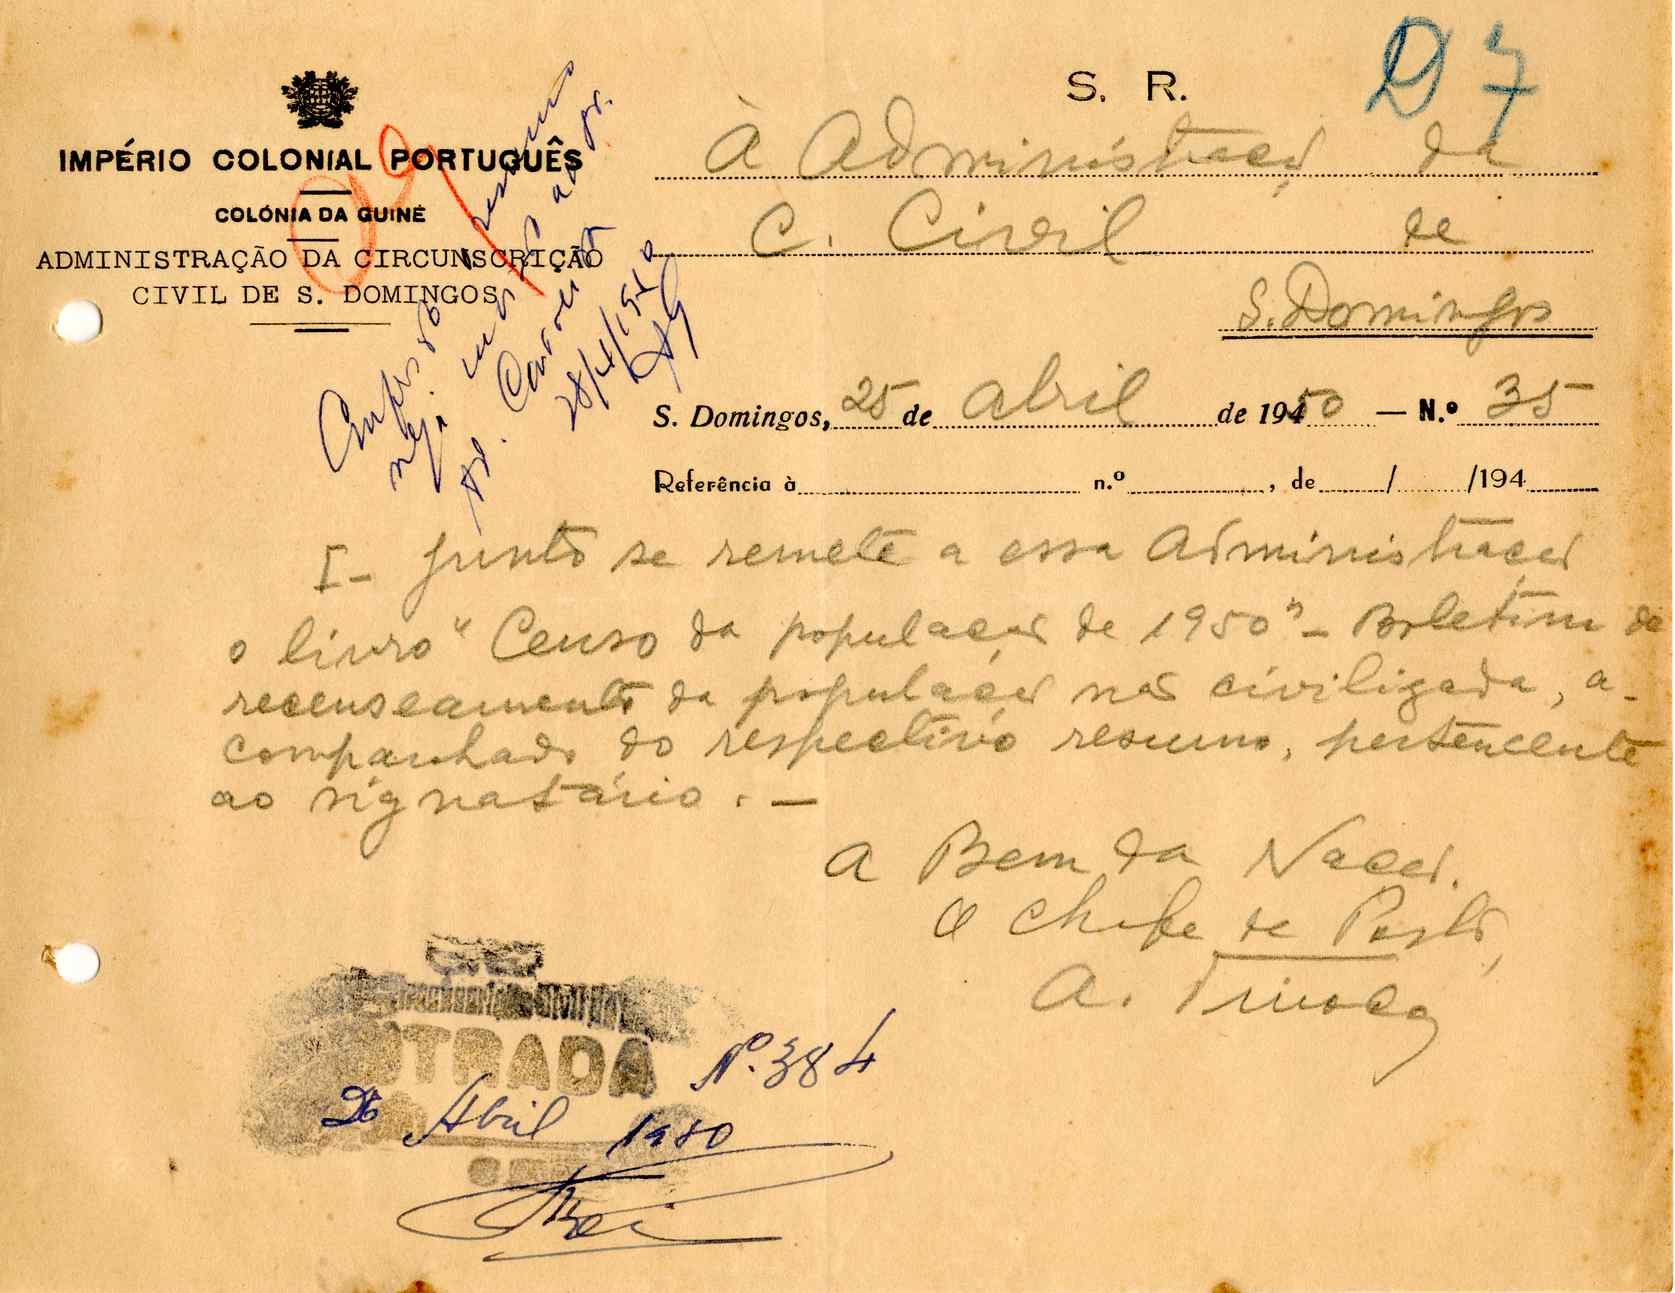 D 7
S. R.
IMPÉRIO COLONIAL PORTUGUÊS
COLÓNIA DA GUINÉ
ADMINISTRAÇÃO DA CIRCUNSCRIÇÃO
CIVIL DE S. DOMINGOS
À Administração da
C. Civil de
S. Domingos
S. Domingos, 25 de Abril de 19450 — N.º 35
Referência à n.º , de / /194
resumo
ao
28/4/950
I - Junto se remete a essa Administração
o livro "Censo da população de 1950" - Boletim de
recenseamento da população não civilizada, a-
companhado do respectivo resumo, pertencente
ao signatário. —
A Bem da Nação.
O Chefe de Posto,
A.
TRADA
Nº. 384
26 Abril 1950